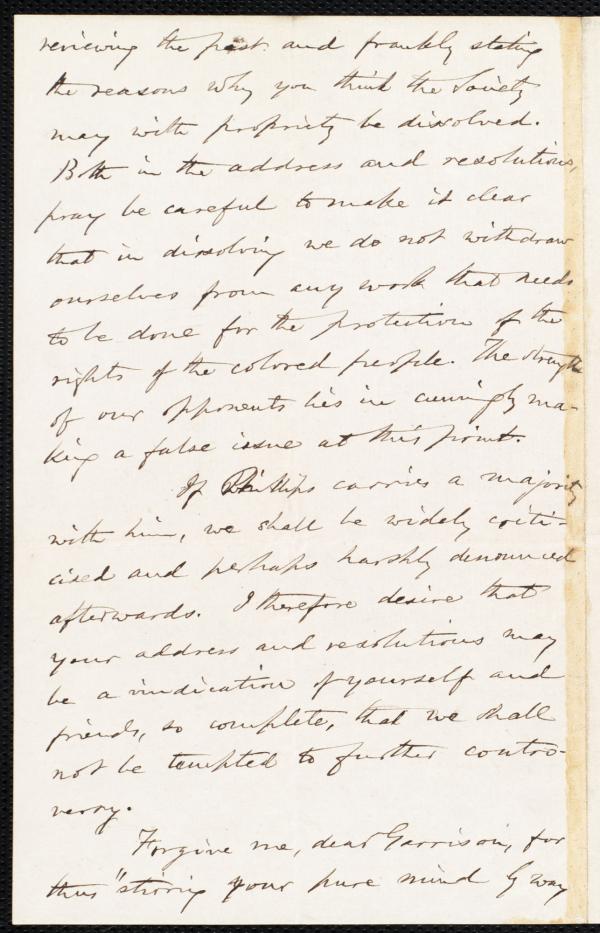 reviewing the past and frankly stating
the reasons why you think the Society
may with propriety be dissolved.
Both in the address and resolutions,
pray be careful to make it clear
that in dissolving we do not withdraw
ourselves from any work that needs
to be done for the protection of the
rights of the colored people. The strength
of our opponents lies in cunningly ma-
king a false issue at this point.
If Phillips carries a majority
with him, we shall be widely criti-
cised and perhaps harshly denounced
afterwards. I therefore desire that
your address and resolutions may
be a vindication of yourself and
friends, so complete, that we shall
not be tempted to further contro-
versy.
Forgive me, dear Garrison, for
thus "stirring your pure mind by way